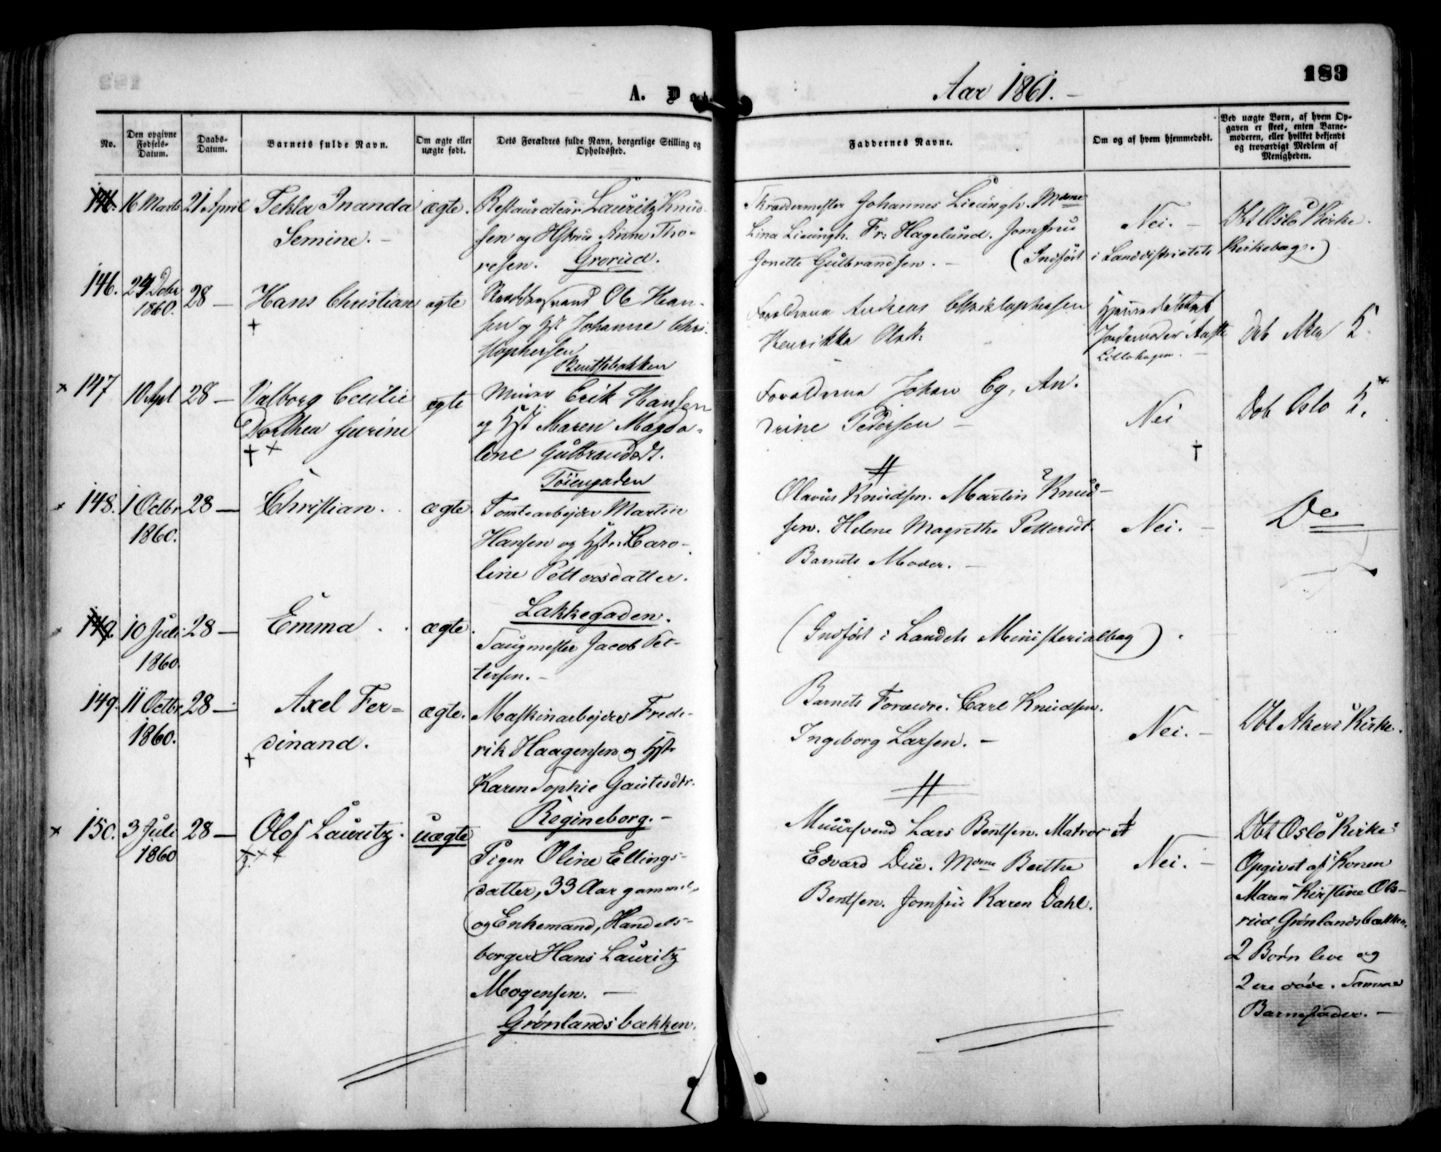 183
A. D
Aar 1861.
No.
Den opgivne Fødsels-Datum.
Daabs-Datum.
Barnets fulde Navn.
Om ægte eller uægte født.
Dets Forældres fulde Navn, borgerlige Stilling og Opholdssted.
Faddernes Navne.
Om og af hvem hjemmedøbt.
Ved uægte Børn, af hvem Opgaven er skeet, enten Barnemoderen, eller hvilket bekjendt og troværdigt Medlem af Menigheden.
146. 16 Marts 21 April Tekla Inanda ægte. Restaurateur Lauritz Knud-
Semine. sen og Hstru Anne Tho-
resen. Grorud.
Skræddermester Johannes Lieungh. Madme
Lina Lieungh. Fr: Hagelund. Jomfru
Jonette Gulbrandsen. (Indført i Landdistrictets Kirkebog.)
Nei.
Dbt Oslo Kirke.
146. 29 Dcbr 28 Hans Christian ægte
1860.
Ole Han-
sen og Hst Johanne Chri-
stophersen
Forældrene Andreas Christophersen
Henrikke Olsdt.
Hjemmedøbt af
Jordemoder
Lillehagen.
Døb Aker K.
147 10 Apl 28 Valborg Cecilie ægte
Dorthea Gurine
Murer Erik Hansen
og Hst Maren Magda-
lene Gulbrandsdt.
Tøiengaden
Forældrene Johan Eg, An-
drine Pedersen
Nei
Døb Oslo K.
148. 1 Octbr 28 Christian. ægte
1860.
Tomtearbeider Martin
Hansen og Hstr: Caro-
line Pettersdatter.
Lakkegaden.
Olavus Knudsen. Martin Knud-
sen. Helene Magrethe Pettersdt.
Barnets Moder.
Nei.
Do
149. 10 Juli 28 Emma ægte.
1860.
Saugmester Jacob Pet-
tersen.
(Indført i Landets Ministerialbog).
149. 11 Octbr 28 Axel Fer- ægte.
1860. dinand.
Maskinarbeider Frede-
rik Haagensen og Hstr
Karen Sophie Gautesdtr.
Regineborg.
Barnets Forældre. Carl Knudsen.
Ingeborg Larsen.
Nei.
Dbt Akers Kirke.
150. 3 Juli 28 Olof Lauritz. uægte
1860
Pigen Oline Ellings-
datter, 33 Aar gammel,
og Enkemand, Handels-
borger Hans Lauritz
Mogensen.
Grønlandsbækken.
Muursvend Lars Bentsen. Matros
Edvard Due. Mdme Berthe
Bentsen. Jomfru Karen Dahl.
Nei.
Dbt Oslo Kirke
Opgivet af Konen
Maren Kirstine Ols-
rud Grønlandsbækken,
2 Børn leve og
2 ere døde. Samme
Barnefader.